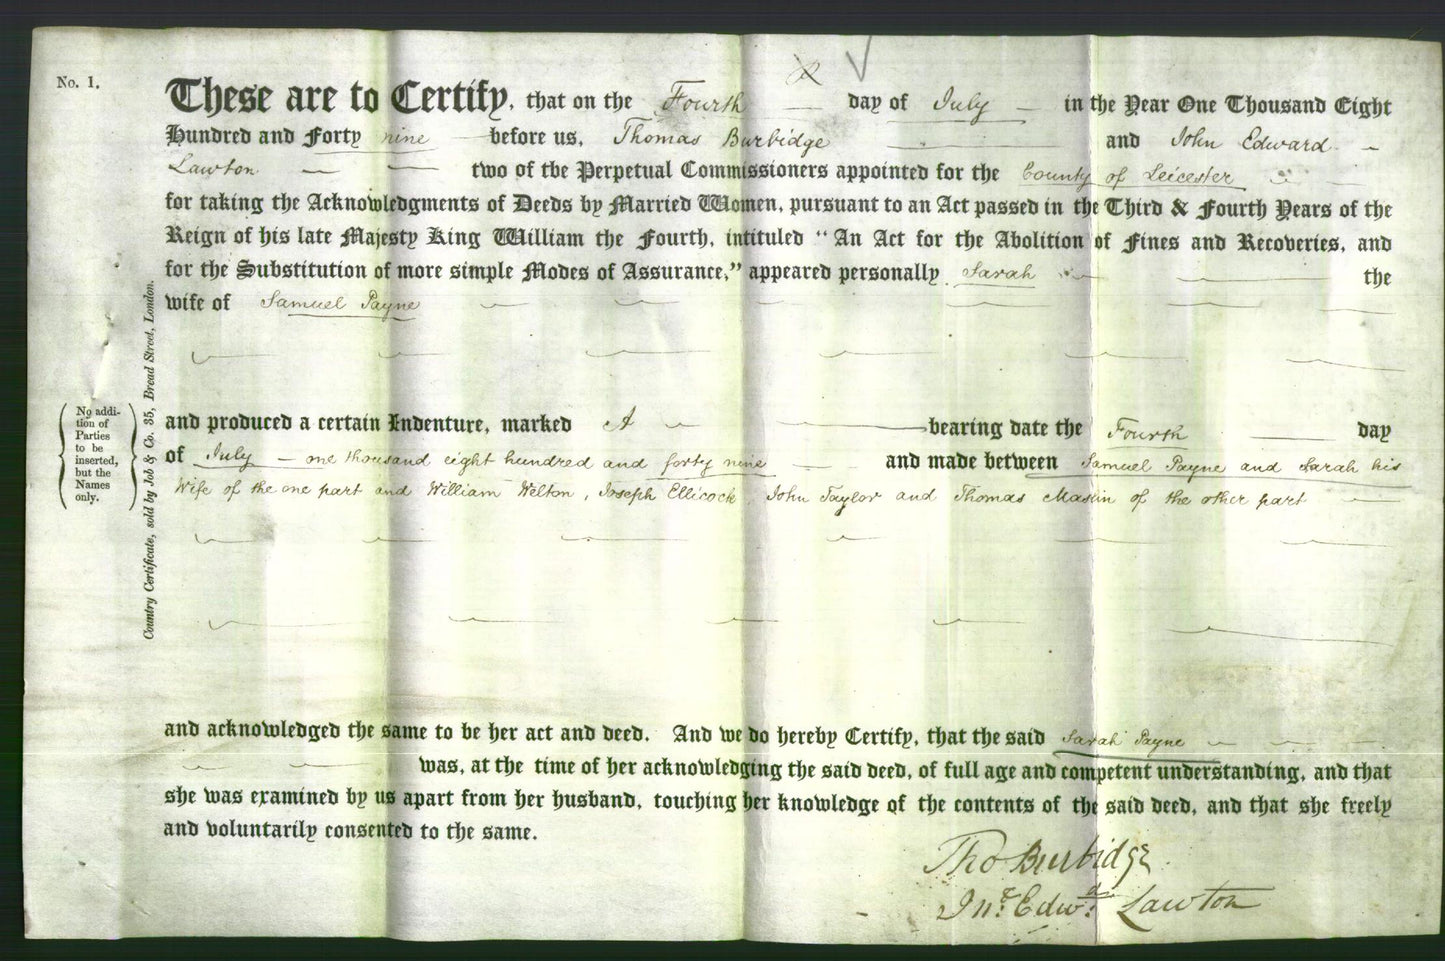 No. 1.
These are to Certify, that on the Fourth day of July in the Year One Thousand Eight
Hundred and Forty nine before us, Thomas Burbidge and John Edward
Lawton two of the Perpetual Commissioners appointed for the County of Leicester
for taking the Acknowledgments of Deeds by Married Women, pursuant to an Act passed in the Third & Fourth Years of the
Reign of his late Majesty King William the Fourth, intituled "An Act for the Abolition of Fines and Recoveries, and
for the Substitution of more simple Modes of Assurance," appeared personally Sarah the
wife of Samuel Payne
and produced a certain Indenture, marked A bearing date the Fourth day
of July one thousand eight hundred and forty nine and made between Samuel Payne and Sarah his
Wife of the one part and William Welton, Joseph Ellicock, John Taylor and Thomas Maskin of the other part
No addi-
tion of
Parties
to be
inserted,
but the
Names
only.
Country Certificate, sold by Job & Co. 35, Bread Street, London.
and acknowledged the same to be her act and deed. And we do hereby Certify, that the said Sarah Payne
was, at the time of her acknowledging the said deed, of full age and competent understanding, and that
she was examined by us apart from her husband, touching her knowledge of the contents of the said deed, and that she freely
and voluntarily consented to the same.
Tho Burbidge
Jno. Edwd. Lawton